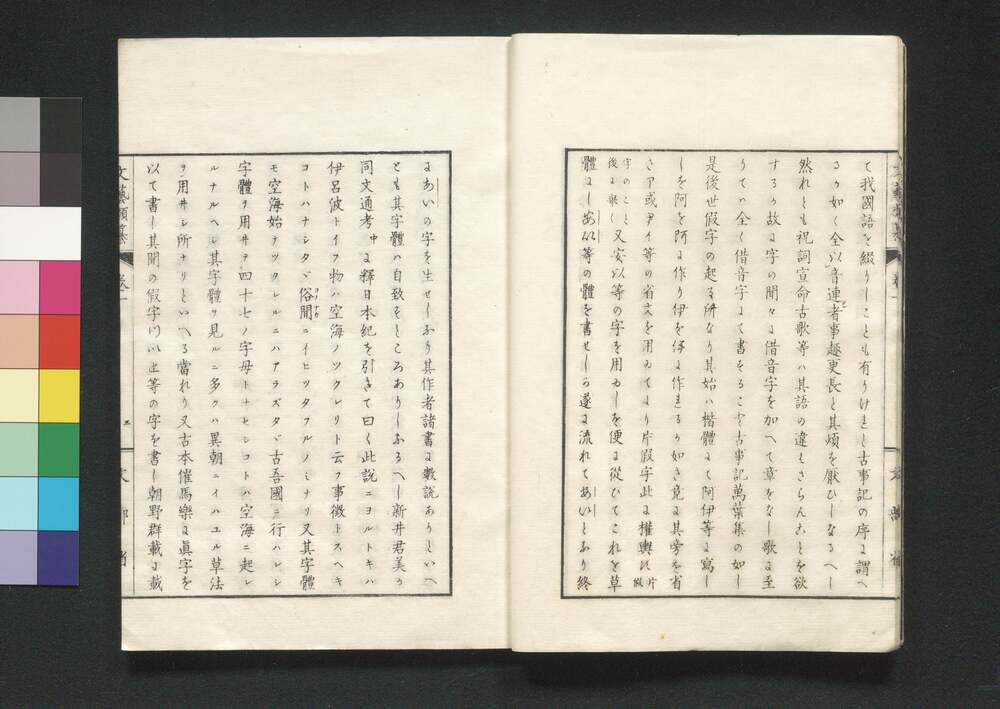 て我國語を綴りしことも有りけれと古事記の序に謂へ
るか如く全以音連者事趣更長と其煩を厭ひしなるへし
然れとも祝詞宣命古歌等ハ其語の違はさらんことを欲
するか故に字の間々に借音字を加へて章をなし歌に至
りてハ全く借音字にて書することを古事記萬葉集の如し
是後世假字の起る所なり其始ハ楷體にて阿伊等に寫し
しを阿を阿に作り伊を伊に作れるか如き竟に其旁を省
きア或ハイ等の省文を用ゐてより片假字此に權輿ハ片假
字のこと後に具く又安以等の字を用ゐしを便に從ひてこれを草
體にしあ以等の體を書せしか遂に流れてあいとなり終
にあいの字を生せしなり其作者諸書に數説ありといへ
とも其字體ハ自致するところありしなるへし新井君美か
同文通考中に釋日本紀を引きて曰く此説ニヨルトキハ
伊呂波トイフ物ハ空海ノツクレリト云フ事徴トスヘキ
コトハナシタヾ俗間ニイヒツタフルノミナリ又其字體
モ空海始テツクレルニハアラズタヾ古吾國ニ行ハレシ
字體ヲ用ヰテ四十七ノ字母トナセシコトハ空海ニ起レ
ルナルヘシ其字體ヲ見ルニ多クハ異朝ニイハユル草法
ヲ用ヰシ所ナリといへる當れり又古本催馬樂に眞字を
以て書し其間の假字川以止等の字を書し朝野群載に載
文藝類纂
卷一
三
文部省